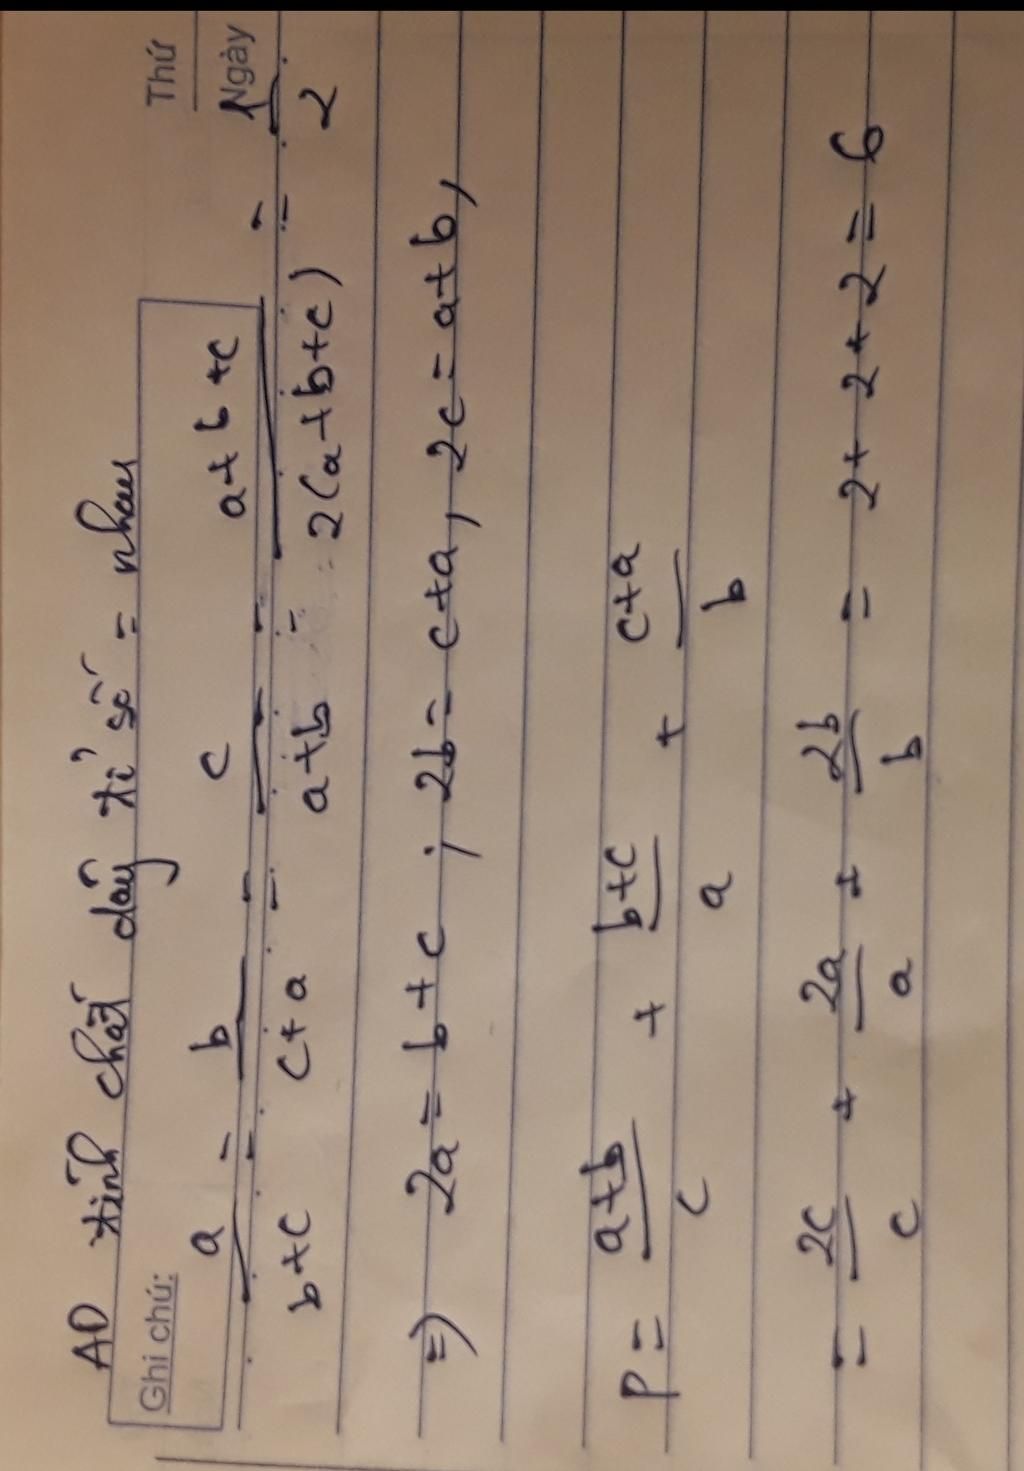 Thứ
Ngày
AD tính chất dãy tỉ số = nhau
Ghi chú:
a/(b+c) = b/(c+a) = c/(a+b) = (a+b+c)/(2(a+b+c)) = 1/2
=) 2a = b+c ; 2b = c+a, 2c = a+b,
P = (a+b)/c + (b+c)/a + (c+a)/b
= 2c/c + 2a/a + 2b/b = 2+2+2 = 6